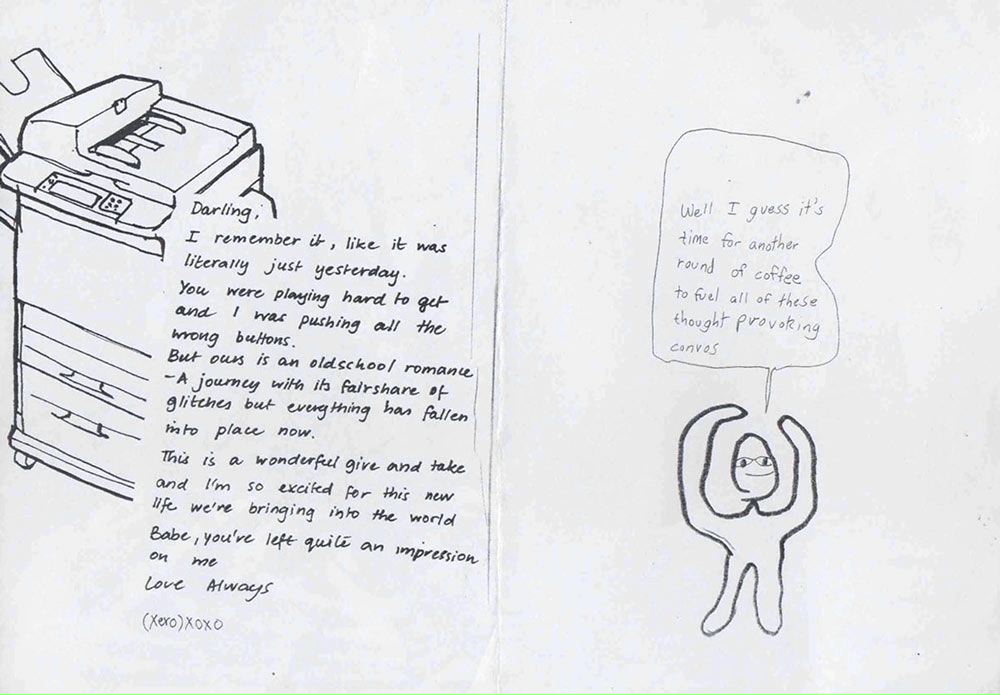 Darling,
I remember it, like it was
literally just yesterday.
You were playing hard to get
and I was pushing all the
wrong buttons.
But ours is an oldschool romance
-A journey with its fairshare of
glitches but everything has fallen
into place now.
This is a wonderful give and take
and I'm so excited for this new
life we're bringing into the world
Babe, you've left quite an impression
on me
Love Always
(Xero)XOXO
Well I guess it's
time for another
round of coffee
to fuel all of these
thought provoking
convos